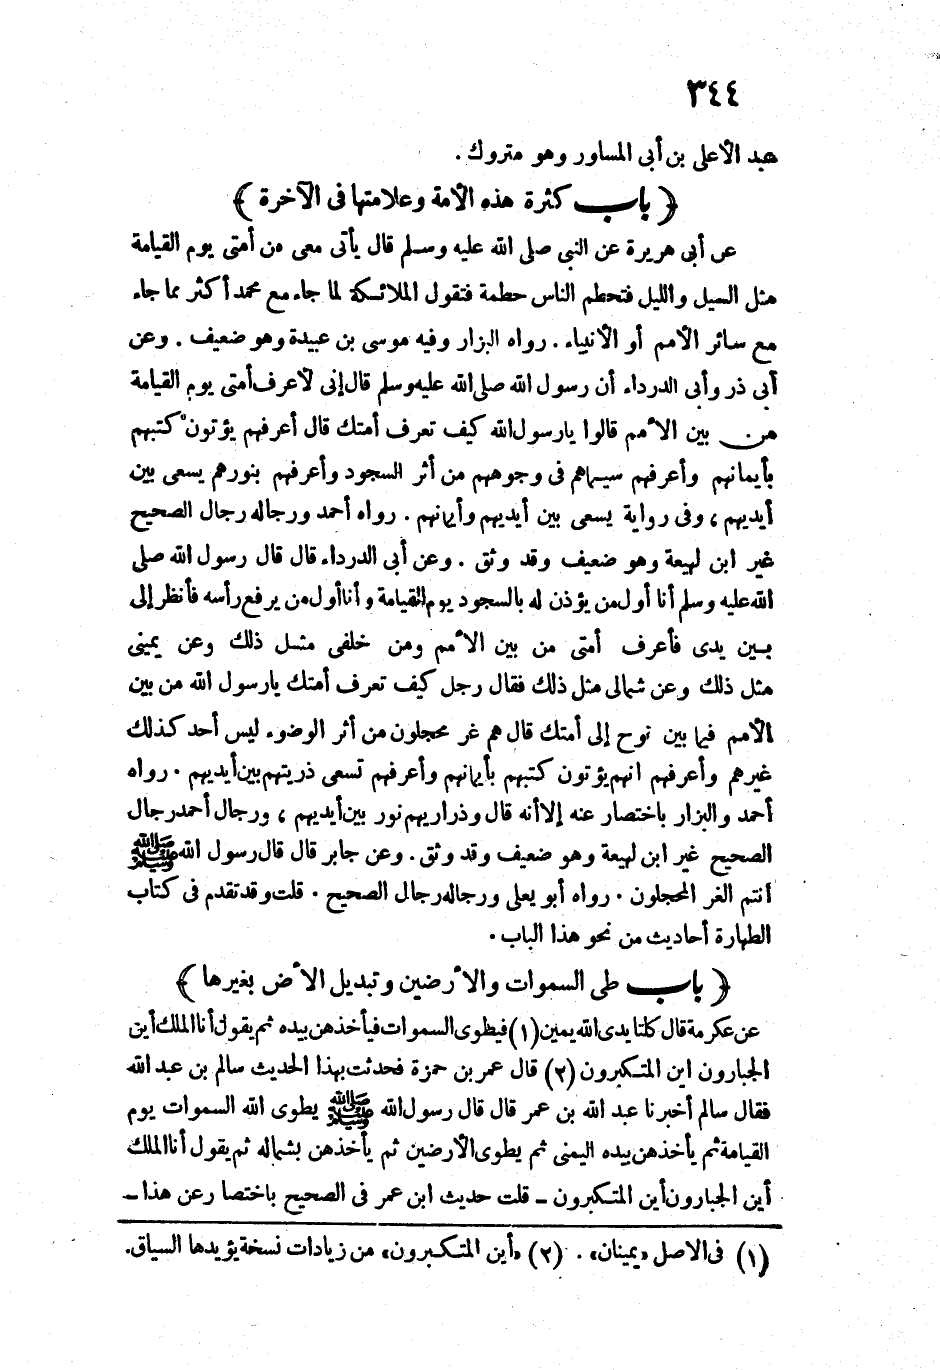 ٣٤٤
عبد الأعلى بن أبى المساور وهو متروك .
﴿ باب كثرة هذه الأمة وعلامتها فى الآخرة ﴾
عن أبى هريرة عن النبى صلى الله عليه وسلم قال يأتى معى من أمتى يوم القيامة
مثل السيل والليل فتحطم الناس حطمة فتقول الملائكة لما جاء مع محمد أكثر مما جاء
مع سائر الأمم أو الأنبياء . رواه البزار وفيه موسى بن عبيدة وهو ضعيف . وعن
أبى ذر وأبى الدرداء أن رسول الله صلى الله عليه وسلم قال إنى لأعرف أمتى يوم القيامة
من بين الأمم قالوا يارسول الله كيف تعرف أمتك قال أعرفهم يؤتون كتبهم
بأيمانهم وأعرفهم سيماهم فى وجوههم من أثر السجود وأعرفهم بنورهم يسعى بين
أيديهم ، وفى رواية يسعى بين أيديهم وأيمانهم . رواه أحمد ورجاله رجال الصحيح
غير ابن لهيعة وهو ضعيف وقد وثق . وعن أبى الدرداء قال قال رسول الله صلى
الله عليه وسلم أنا أول من يؤذن له بالسجود يوم القيامة وأنا أول من يرفع رأسه فأنظر إلى
بين يدى فأعرف أمتى من بين الأمم ومن خلفى مثل ذلك وعن يمينى
مثل ذلك وعن شمالى مثل ذلك فقال رجل كيف تعرف أمتك يارسول الله من بين
الأمم فيما بين نوح إلى أمتك قال هم غر محجلون من أثر الوضوء ليس أحد كذلك
غيرهم وأعرفهم انهم يؤتون كتبهم بأيمانهم وأعرفهم تسعى ذريتهم بين أيديهم . رواه
أحمد والبزار باختصار عنه إلا أنه قال وذراريهم نور بين أيديهم ، ورجال أحمد رجال
الصحيح غير ابن لهيعة وهو ضعيف وقد وثق . وعن جابر قال قال رسول الله ﷺ
أنتم الغر المحجلون . رواه أبو يعلى ورجاله رجال الصحيح . قلت وقد تقدم فى كتاب
الطهارة أحاديث من نحو هذا الباب .
﴿ باب طى السموات والأرضين وتبديل الأرض بغيرها ﴾
عن عكرمة قال كلتا يدى الله يمين (١) فيطوى السموات فيأخذهن بيده ثم يقول أنا الملك أين
الجبارون اين المتكبرون (٢) قال عمر بن حمزة فحدثت بهذا الحديث سالم بن عبد الله
فقال سالم أخبرنا عبد الله بن عمر قال قال رسول الله ﷺ يطوى الله السموات يوم
القيامة ثم يأخذهن بيده اليمنى ثم يطوى الأرضين ثم يأخذهن بشماله ثم يقول أنا الملك
أين الجبارون أين المتكبرون ـ قلت حديث ابن عمر فى الصحيح باختصا رعن هذا ـ
(١) فى الاصل «يمينان» . (٢) «أين المتكبرون» من زيادات نسخة يؤيدها السياق.